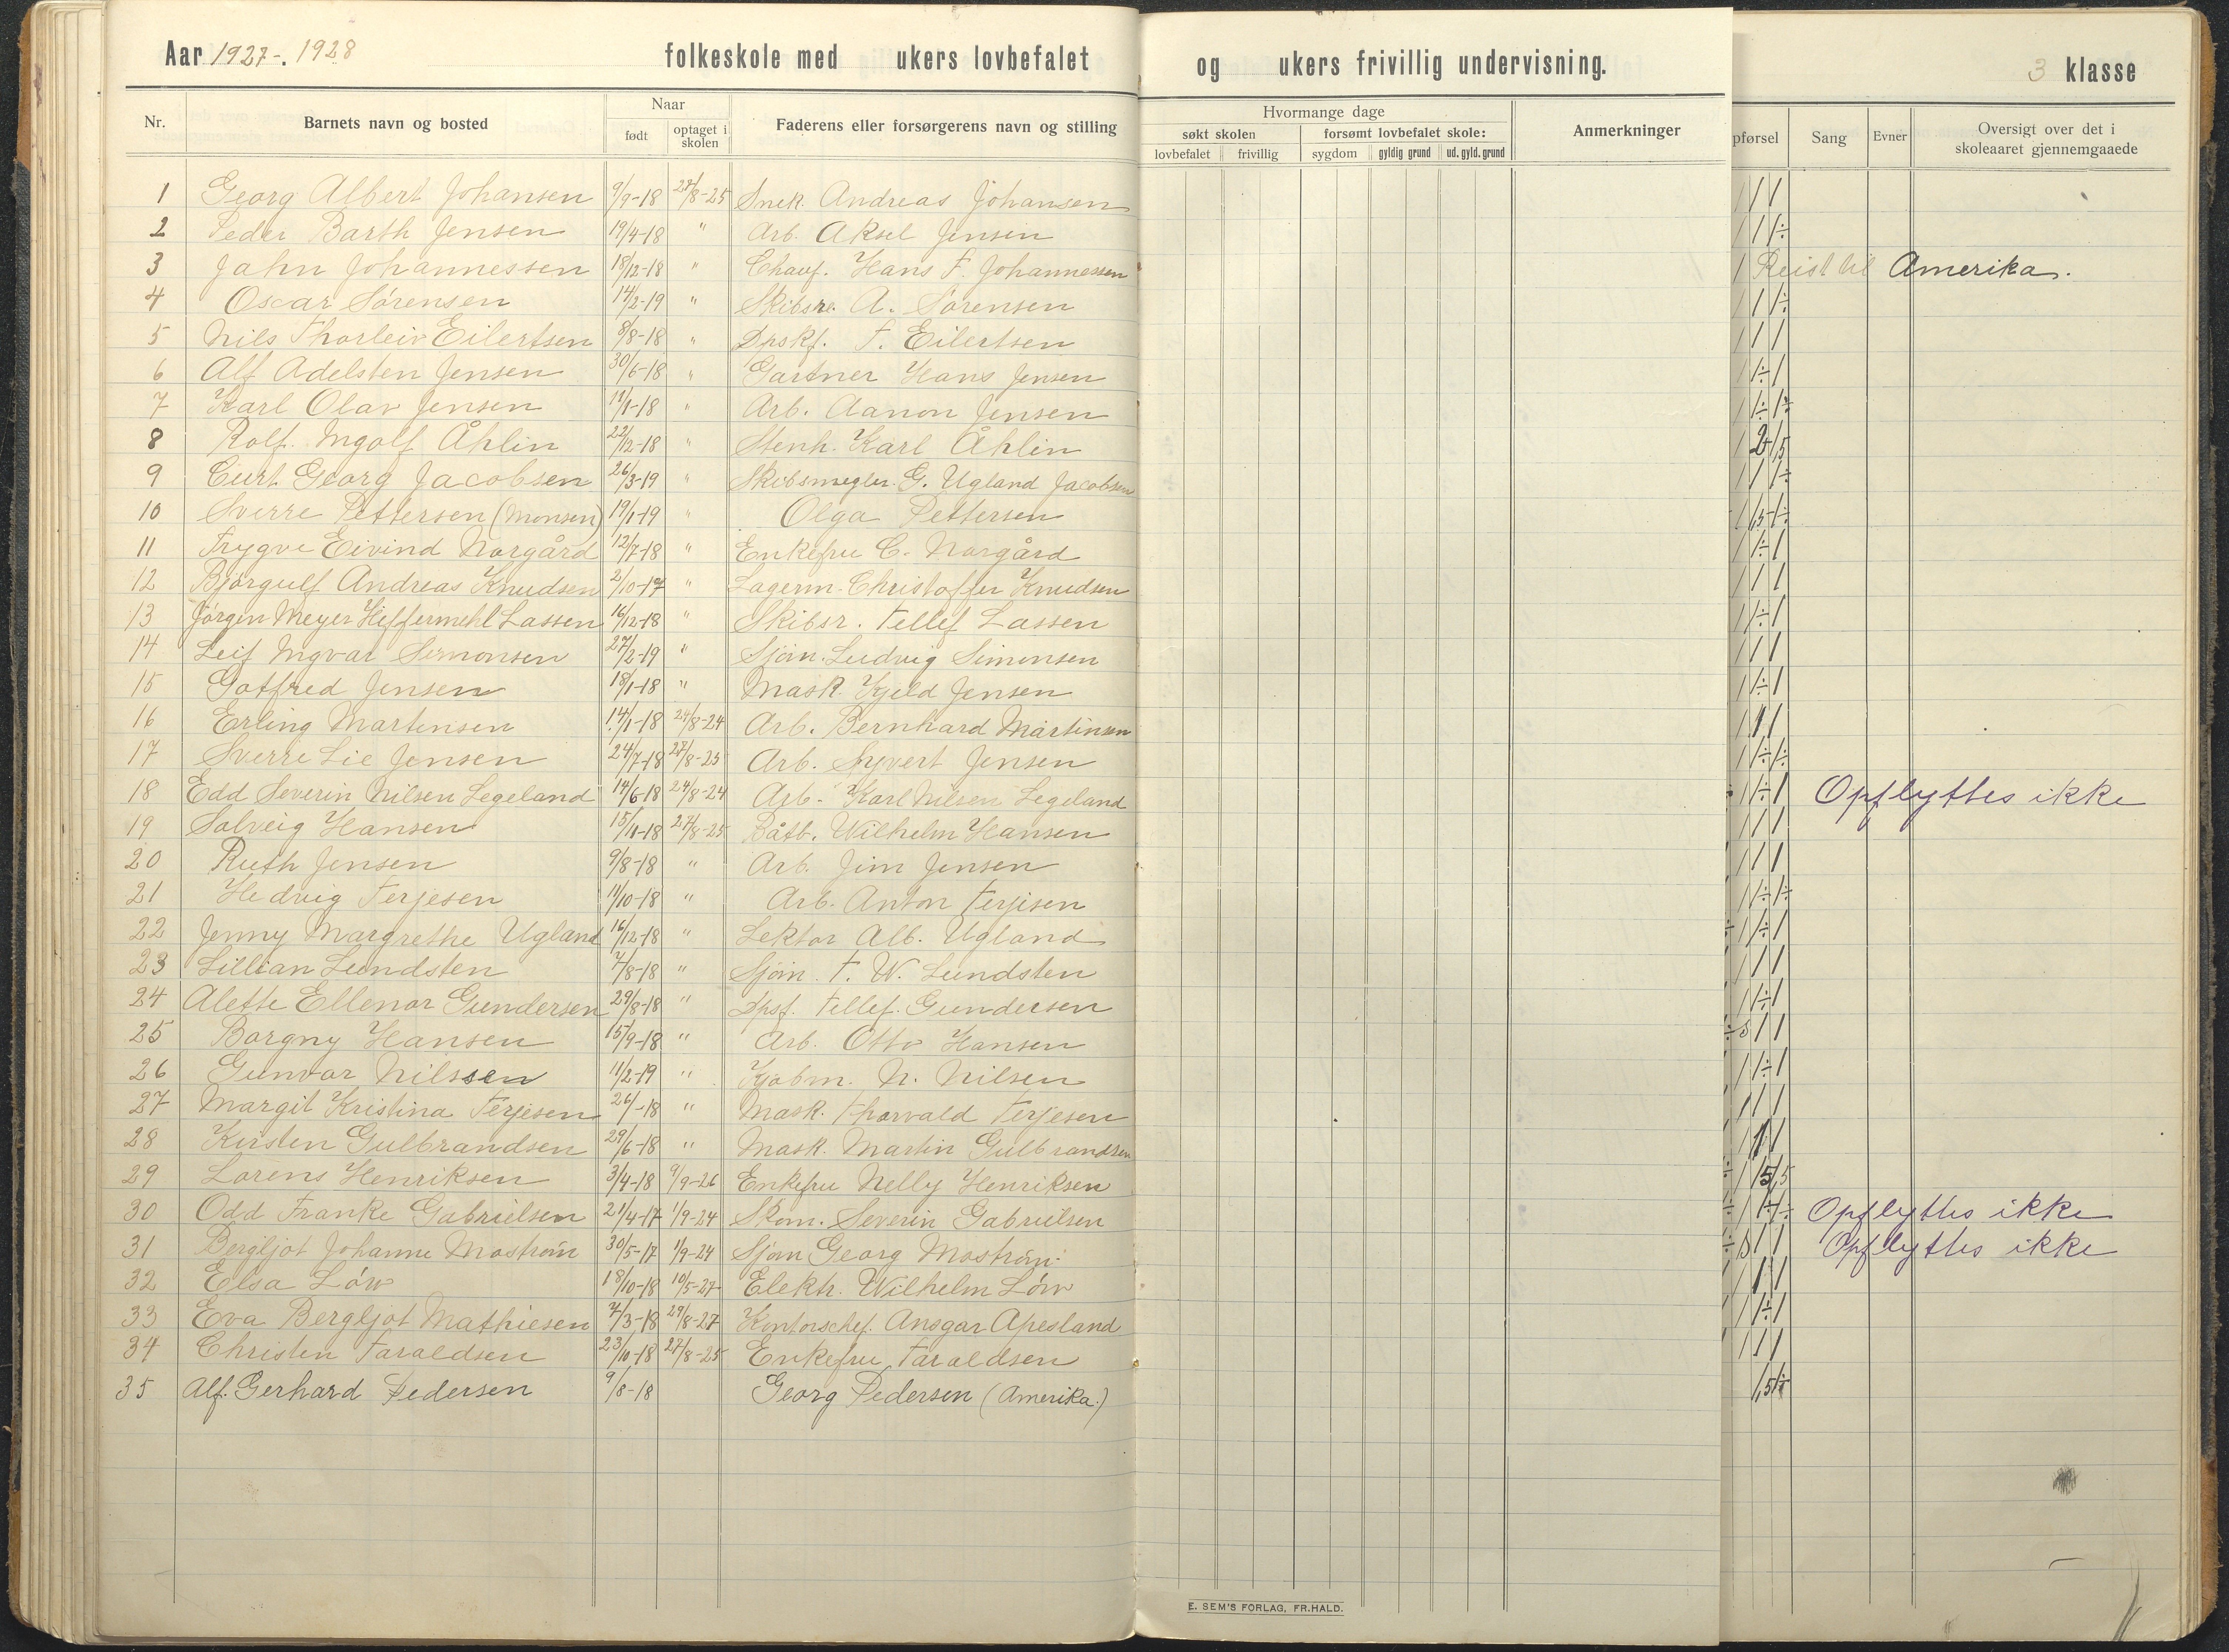 Aar 1927-. 1928 folkeskole med ukers lovbefalet og ukers frivillig undervisning. 3 klasse
Nr. Barnets navn og bosted Naar født optaget i skolen Faderens eller forsørgerens navn og stilling Hvormange dage søkt skolen lovbefalet frivillig forsømt lovbefalet skole: sygdom gyldig grund ud. gyld. grund Anmerkninger pførsel Sang Evner Oversigt over det i skoleaaret gjennemgaaede
1 Georg Albert Johansen 9/9-18 27/8-25 Snek. Andreas Johansen
2 Peder Barth Jensen 19/4-18 " Arb. Aksel Jensen
3 Jahn Johannessen 18/12-18 " Chauf. Hans F. Johannessen Reist til Amerika.
4 Oscar Sørensen 14/2-19 " A. Sørensen
5 Nils Thorleiv Eilertsen 8/8-18 " Dpskf. F. Eilertsen
6 Alf Adelsten Jensen 30/6-18 " Gartner Hans Jensen
7 Karl Olav Jensen 11/1-18 " Arb. Aanon Jensen
8 Rolf Ingolf Åhlin 22/12-18 " Stenh. Karl Åhlin
9 Curt Georg Jacobsen 26/3-19 " Skibsmegler. G. Ugland Jacobsen
10 Sverre Pettersen (Monsen) 19/1-19 " Olga Pettersen
11 Trygve Eivind Norgård 12/7-18 " Enkefru C. Norgård
12 Bjørgulf Andreas Knudsen 2/10-17 " Lagerm. Christoffer Knudsen
13 Jørgen Meyer Hiffermehl Lassen 16/12-18 " Skibsr. Tellef Lassen
14 Leif Ingvar Simonsen 27/2-19 " Sjøm. Ludvig Simonsen
15 Gotfred Jensen 18/1-18 " Mask. Kjeld Jensen
16 Erling Martensen 14/1-18 24/8-24 Arb. Bernhard Martinsen
17 Sverre Lie Jensen 24/7-18 27/8-25 Arb. Syvert Jensen
18 Edd Severin Nilsen Legeland 14/6-18 24/8-24 Arb. Karl Nilsen Legeland Opflyttes ikke
19 Solveig Hansen 15/11-18 27/8-25 Båtb. Wilhelm Hansen
20 Ruth Jensen 9/8-18 " Arb. Jim Jensen
21 Hedvig Terjesen 11/10-18 " Arb. Anton Terjesen
22 Jenny Margrethe Ugland 16/12-18 " Lektor Alb. Ugland
23 Lillian Lundsten 7/8-18 " Sjøm. F. W. Lundsten
24 Alette Ellenor Gundersen 29/8-18 " Dpsf. Tellef. Gundersen
25 Borgny Hansen 15/9-18 " Arb. Otto Hansen
26 Gunvor Nilssen 11/2-19 " Kjøbm. N. Nilsen
27 Margit Kristina Terjesen 26/-18 " Mask. Thorvald Terjesen
28 Kirsten Gulbrandsen 29/6-18 " Mask. Martin Gulbrandsen
29 Lorens Henriksen 3/4-18 9/9-26 Enkefru Nelly Henriksen
30 Odd Franke Gabrielsen 21/4-17 1/9-24 Skom. Severin Gabrielsen Opflyttes ikke
31 Bergljot Johanne Mostrøm 30/5-17 1/9-24 Sjøm Georg Mostrøm Opflyttes ikke
32 Elsa Löw 18/10-18 10/5-27 Elektr. Wilhelm Löw
33 Eva Bergljot Mathiesen 7/3-18 29/8-27 Kontorschef. Ansgar Apesland
34 Christen Taraldsen 23/10-18 27/8-25 Enkefru Taraldsen
35 Alf. Gerhard Pedersen 9/8-18 Georg Pedersen (Amerika.)
E. SEM'S FORLAG, FR.HALD.